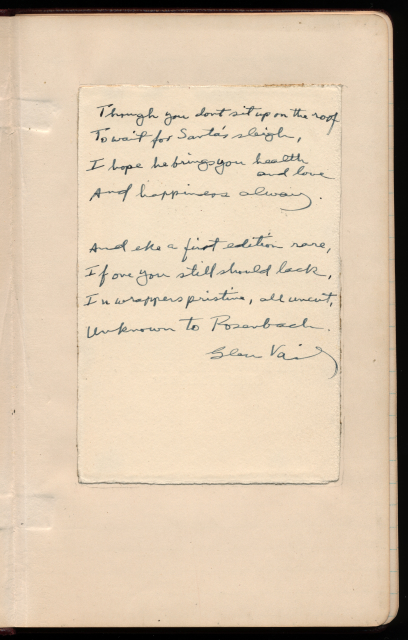 Though you dont sit up on the roof
To wait for Santa's sleigh,
I hope he brings you health
and love
And happiness alway.
And eke a first edition rare,
If one you still should lack,
In wrappers pristine, all uncut,
Unknown to Rosenbach.